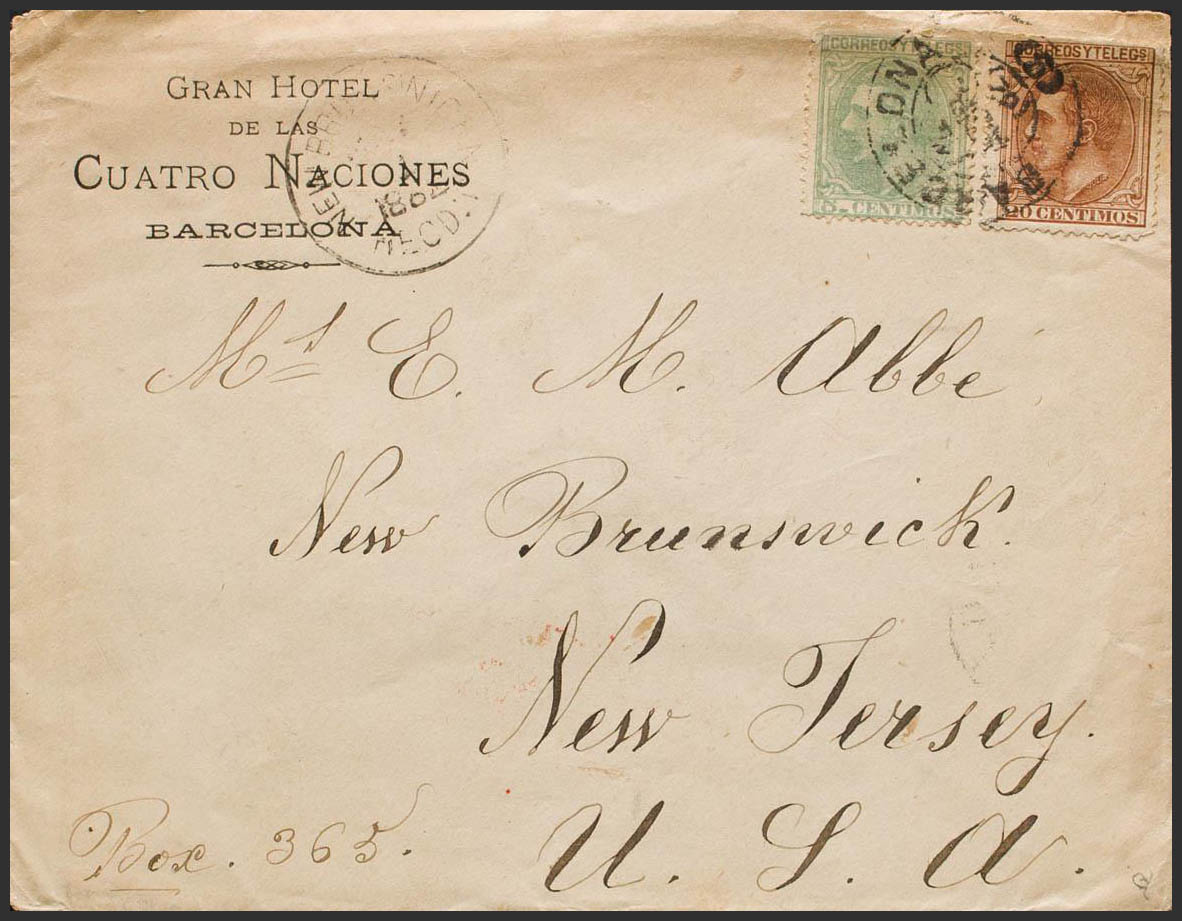 GRAN HOTEL
DE LAS
CUATRO NACIONES
BARCELONA
NEW BRUNSWICK
1882
RECD.
CORREOS Y TELEGS
5 CENTIMOS
CORREOS Y TELEGS
20 CENTIMOS
Mrs E. M. Abbe
New Brunswick.
New Jersey.
U. S. A.
Box. 365.